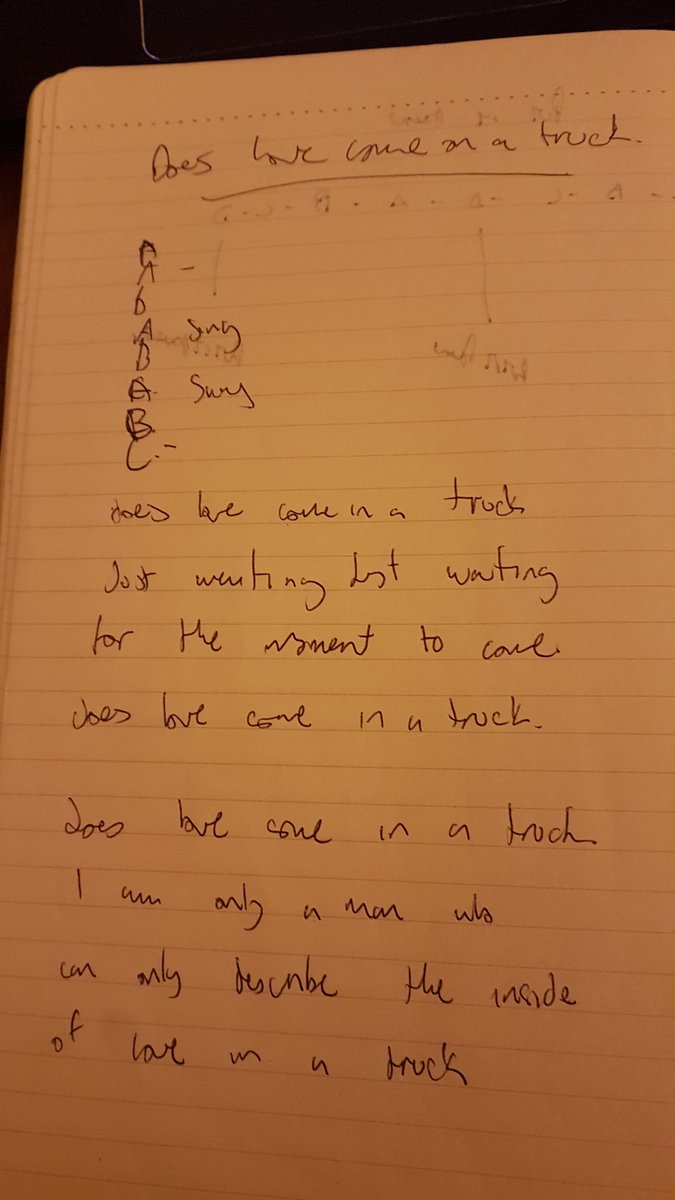 Does love come in a truck.
A
A -
B
A Sing
B
A Sing
B.
C. -
does love come in a truck
Just waiting Just waiting
for the moment to come.
does love come in a truck.
does love come in a truck.
I am only a man who
can only describe the inside
of love in a truck